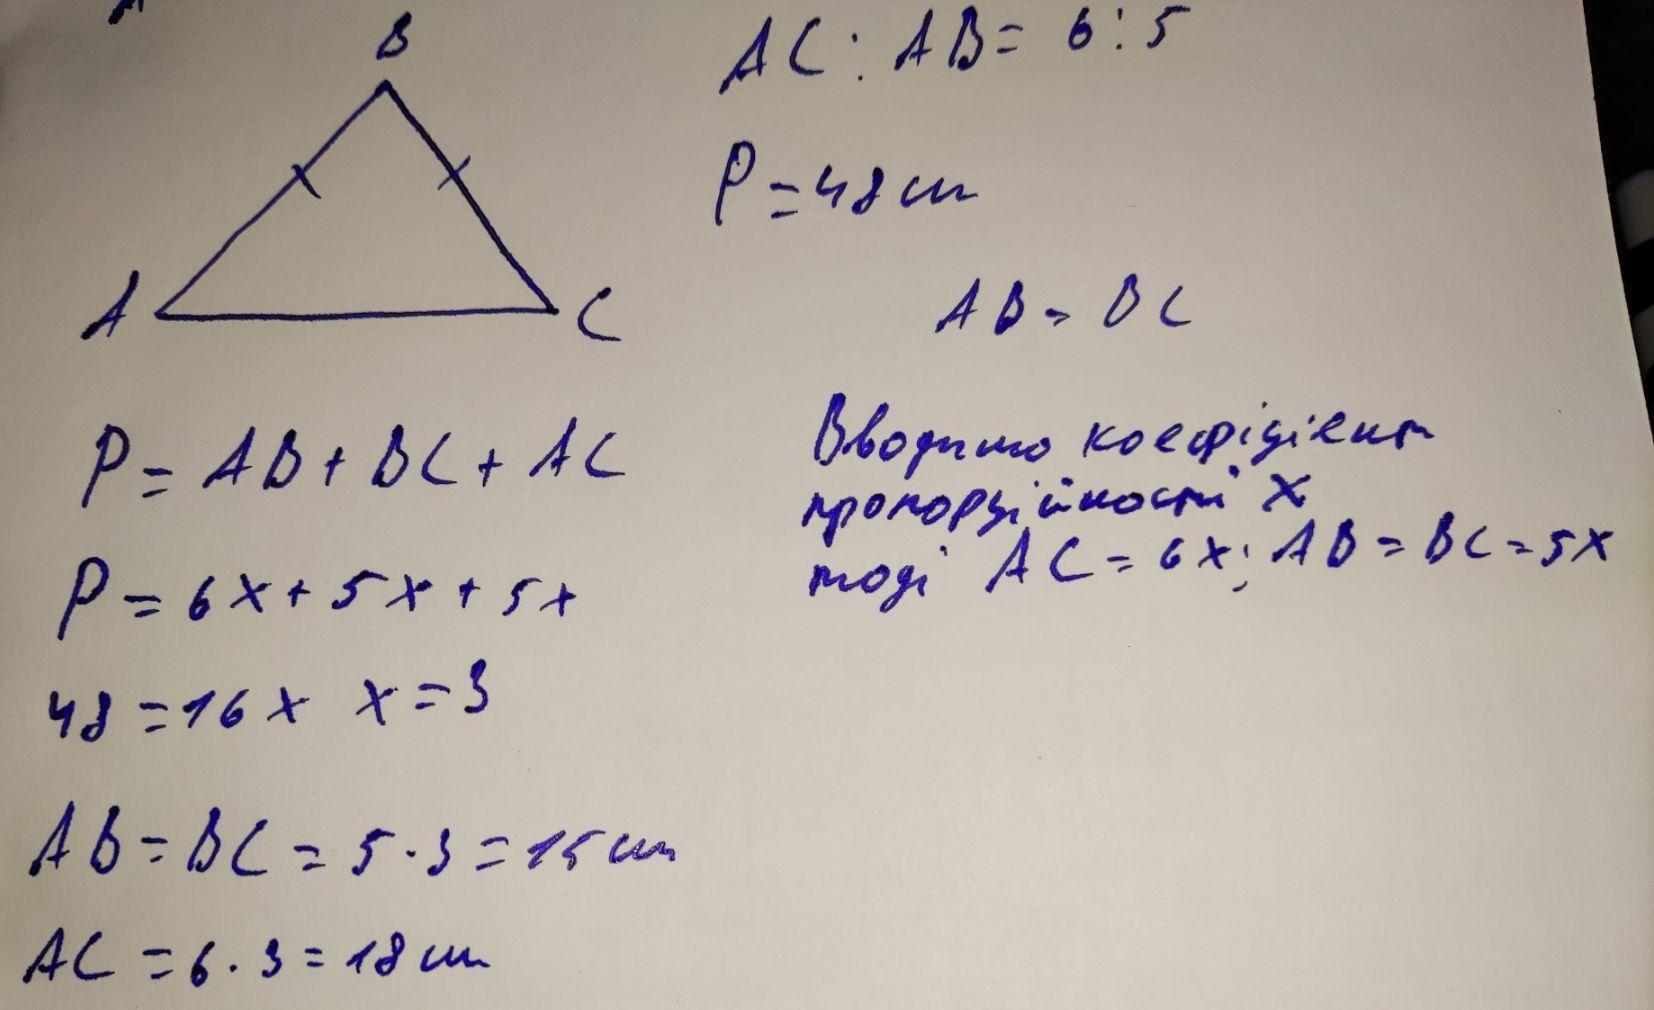 B
A
C
AC : AB = 6 : 5
P = 48 cm
AB = BC
P = AB + BC + AC
Вводимо коефіцієнт
пропорційності x
тоді AC = 6x; AB = BC = 5x
P = 6x + 5x + 5x
48 = 16x x = 3
AB = BC = 5 · 3 = 15 cm
AC = 6 · 3 = 18 cm